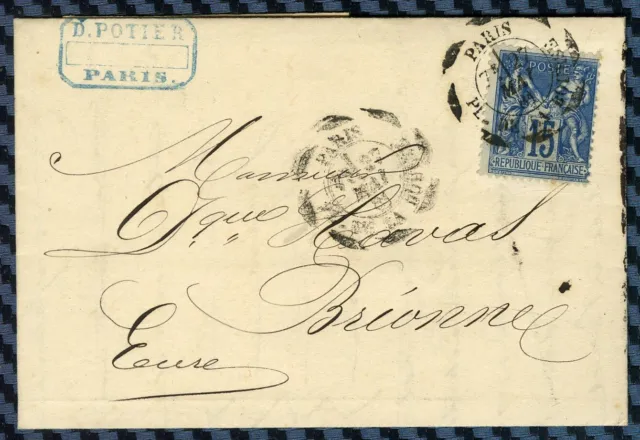 D. POTIER
PARIS.
PARIS
POSTES
15
REPUBLIQUE FRANÇAISE
PARIS
Monsieur
Dque Havas
Brionne
Eure